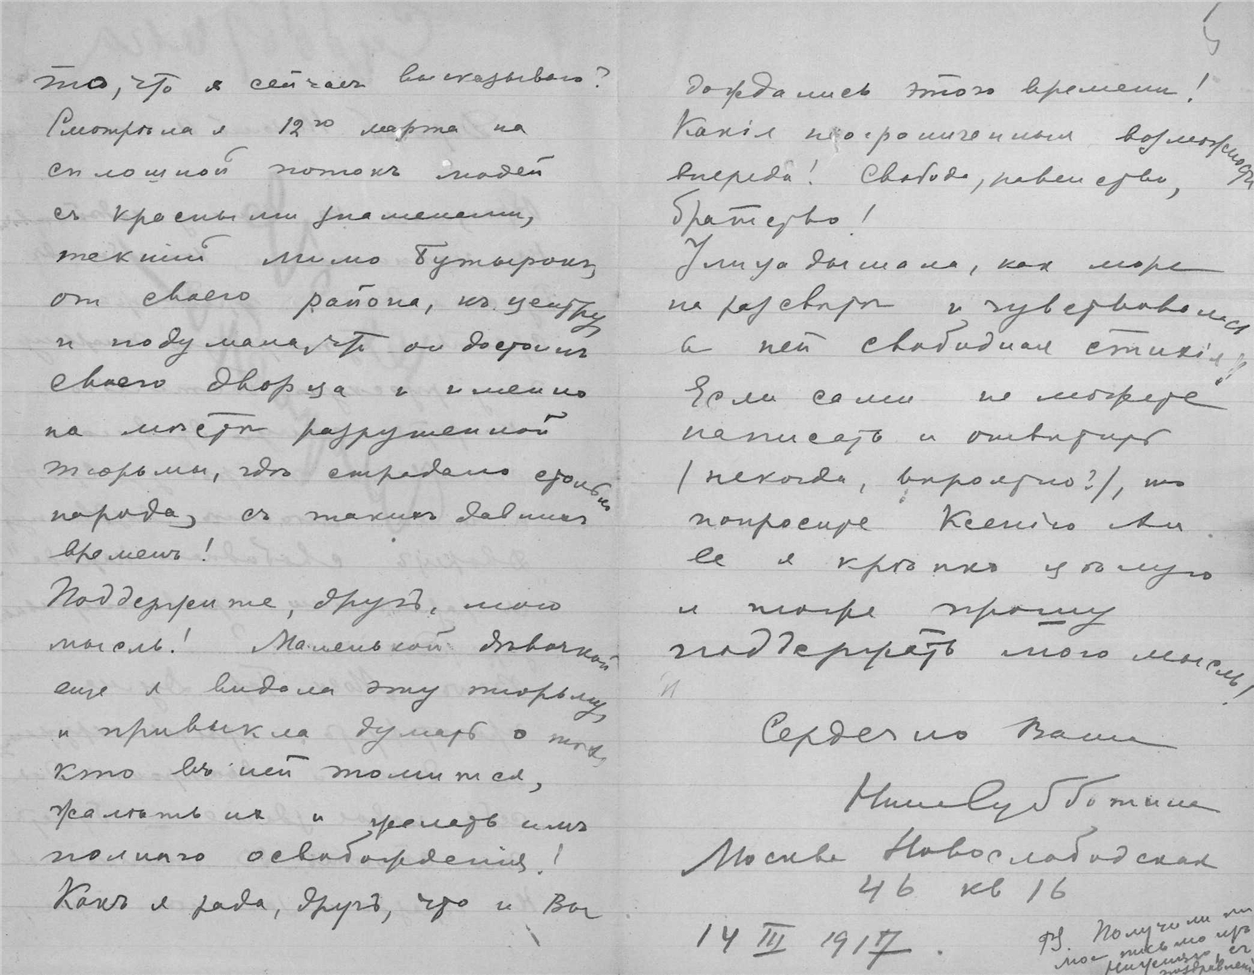 то, что я сейчас высказываю?
Смотрѣла я 12го марта на
сплошной потокъ людей
съ красными знаменами,
текшій мимо Бутырокъ,
от своего района, къ центру
и подумала, что он достоинъ
своего дворца и именно
на мѣстѣ разрушенной
тюрьмы, гдѣ страдало столько
народа, съ такихъ давнихъ
временъ!
Поддержите, другъ, мою
мысль! Маленькой дѣвочкой
еще я видѣла эту тюрьму,
и привыкла думать о тѣхъ,
кто въ ней томится,
жалѣть их и желать имъ
полнаго освобожденія!
Какъ я рада, другъ, что и Вы
дождались этого времени!
Какія неограниченныя возможности
впереди! Свобода, равенство,
братство!
Улица дышала, как море
на разсвѣтѣ и чувствовалась
в ней свободная стихія
Если сами не можете
написать и отвѣтить
(некогда, вѣроятно?), то
попросите Ксенію Ал
Ее я крѣпко цѣлую
и тоже прошу
поддержать мою мысль!
Сердечно Ваша
Нина Субботина
Москва Новослободская
46 кв 16
14 III 1917.
PS. Получили ли
мое письмо изъ
с
поздравлен